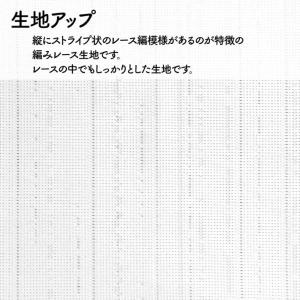 生地アップ
縦にストライプ状のレース編模様があるのが特徴の
編みレース生地です。
レースの中でもしっかりとした生地です。